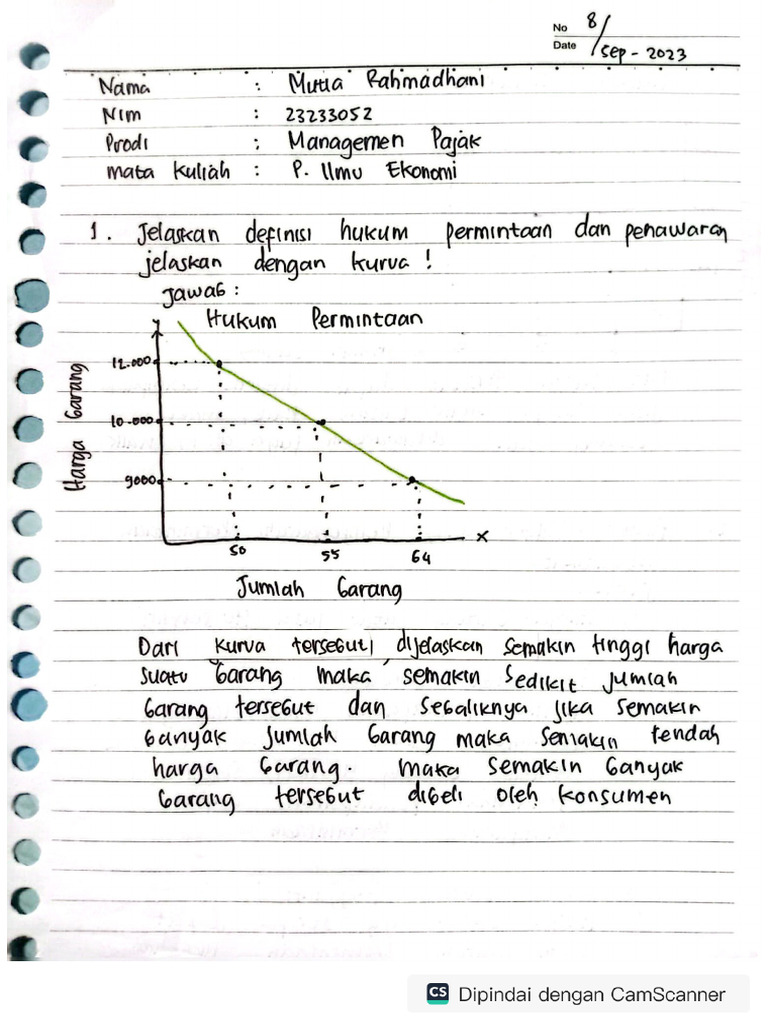 No 8/
Date /sep - 2023
Nama : Mutia Rahmadhani
Nim : 23233052
Prodi : Managemen Pajak
mata kuliah : P. Ilmu Ekonomi
1. Jelaskan definisi hukum permintaan dan penawaran
jelaskan dengan kurva !
jawab :
Y
Hukum Permintaan
Harga barang
12.000
10.000
9000
50 55 64
X
Jumlah barang
Dari kurva tersebut, dijelaskan semakin tinggi harga
suatu barang maka, semakin sedikit jumlah
barang tersebut dan sebaliknya jika semakin
banyak jumlah barang maka semakin rendah
harga barang. maka semakin banyak
barang tersebut dibeli oleh konsumen
CS Dipindai dengan CamScanner